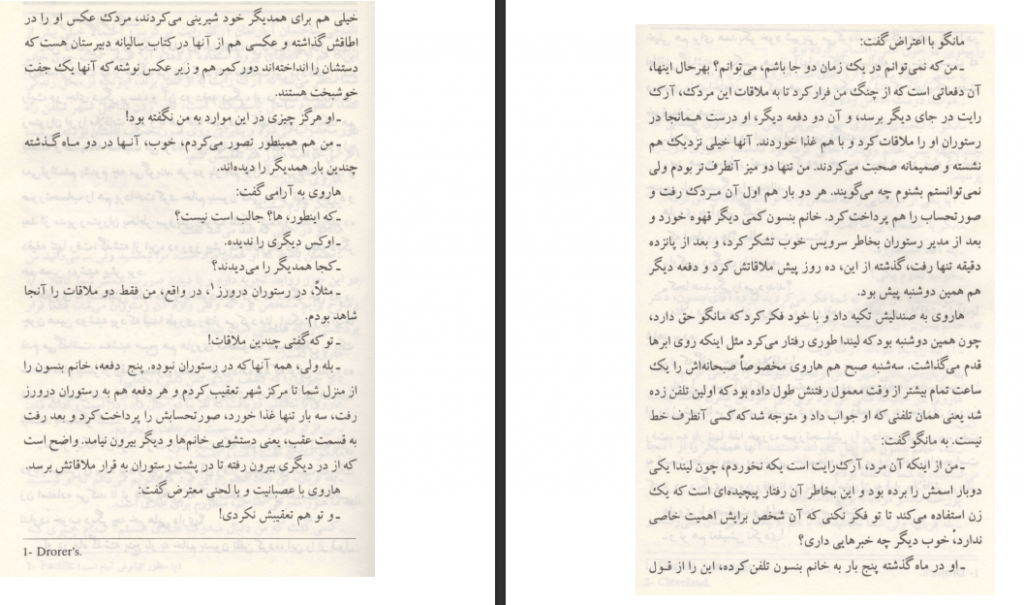 خیلی هم برای همدیگر خود شیرینی می‌کردند، مردک عکس او را در
اطاقش گذاشته و عکسی هم از آنها در کتاب سالیانه دبیرستان هست که
دستشان را انداخته‌اند دور کمر هم و زیر عکس نوشته که آنها یک جفت
خوشبخت هستند.
ـ او هرگز چیزی در این موارد به من نگفته بود!
ـ من هم همینطور تصور می‌کردم، خوب، آنها در دو ماه گذشته
چندین بار همدیگر را دیده‌اند.
هاروی به آرامی گفت:
ـ که اینطور، ها؟ جالب است نیست؟
ـ او کس دیگری را ندیده.
ـ کجا همدیگر را می‌دیدند؟
ـ مثلاً، در رستوران درورز۱، در واقع، من فقط دو ملاقات را آنجا
شاهد بودم.
ـ تو که گفتی چندین ملاقات!
ـ بله ولی، همه آنها که در رستوران نبوده. پنج دفعه، خانم بنسون را
از منزل شما تا مرکز شهر تعقیب کردم و هر دفعه هم به رستوران درورز
رفت، سه بار تنها غذا خورد، صورتحسابش را پرداخت کرد و بعد رفت
به قسمت عقب، یعنی دستشویی خانم‌ها و دیگر بیرون نیامد. واضح است
که از در دیگری بیرون رفته تا در پشت رستوران به قرار ملاقاتش برسد.
هاروی با عصبانیت و با لحنی معترض گفت:
ـ و تو هم تعقیبش نکردی!
1- Drorer's.
مانگو با اعتراض گفت:
ـ من که نمی‌توانم در یک زمان دو جا باشم، می‌توانم؟ بهرحال اینها،
آن دفعاتی است که از چنگ من فرار کرد تا به ملاقات این مردک، آرک
رایت در جای دیگر برسد، و آن دو دفعه دیگر، او درست همانجا در
رستوران او را ملاقات کرد و با هم غذا خوردند. آنها خیلی نزدیک هم
نشسته و صمیمانه صحبت می‌کردند. من تنها دو میز آنطرف‌تر بودم ولی
نمی‌توانستم بشنوم چه می‌گویند. هر دو بار هم اول آن مردک رفت و
صورتحساب را هم پرداخت کرد. خانم بنسون کمی دیگر قهوه خورد و
بعد از مدیر رستوران بخاطر سرویس خوب تشکر کرد، و بعد از پانزده
دقیقه تنها رفت، گذشته از این، ده روز پیش ملاقاتش کرد و دفعه دیگر
هم همین دوشنبه پیش بود.
هاروی به صندلیش تکیه داد و با خود فکر کرد که مانگو حق دارد،
چون همین دوشنبه بود که لیندا طوری رفتار می‌کرد مثل اینکه روی ابرها
قدم می‌گذاشت. سه‌شنبه صبح هم هاروی مخصوصاً صبحانه‌اش را یک
ساعت تمام بیشتر از وقت معمول رفتنش طول داده بود که اولین تلفن زده
شد یعنی همان تلفنی که او جواب داد و متوجه شد که کسی آنطرف خط
نیست. به مانگو گفت:
ـ من از اینکه آن مرد، آرک‌رایت است یکه نخوردم، چون لیندا یکی
دوبار اسمش را برده بود و این بخاطر آن رفتار پیچیده‌ای است که یک
زن استفاده می‌کند تا تو فکر نکنی که آن شخص برایش اهمیت خاصی
ندارد، خوب دیگر چه خبرهایی داری؟
ـ او در ماه گذشته پنج بار به خانم بنسون تلفن کرده، این را از قول